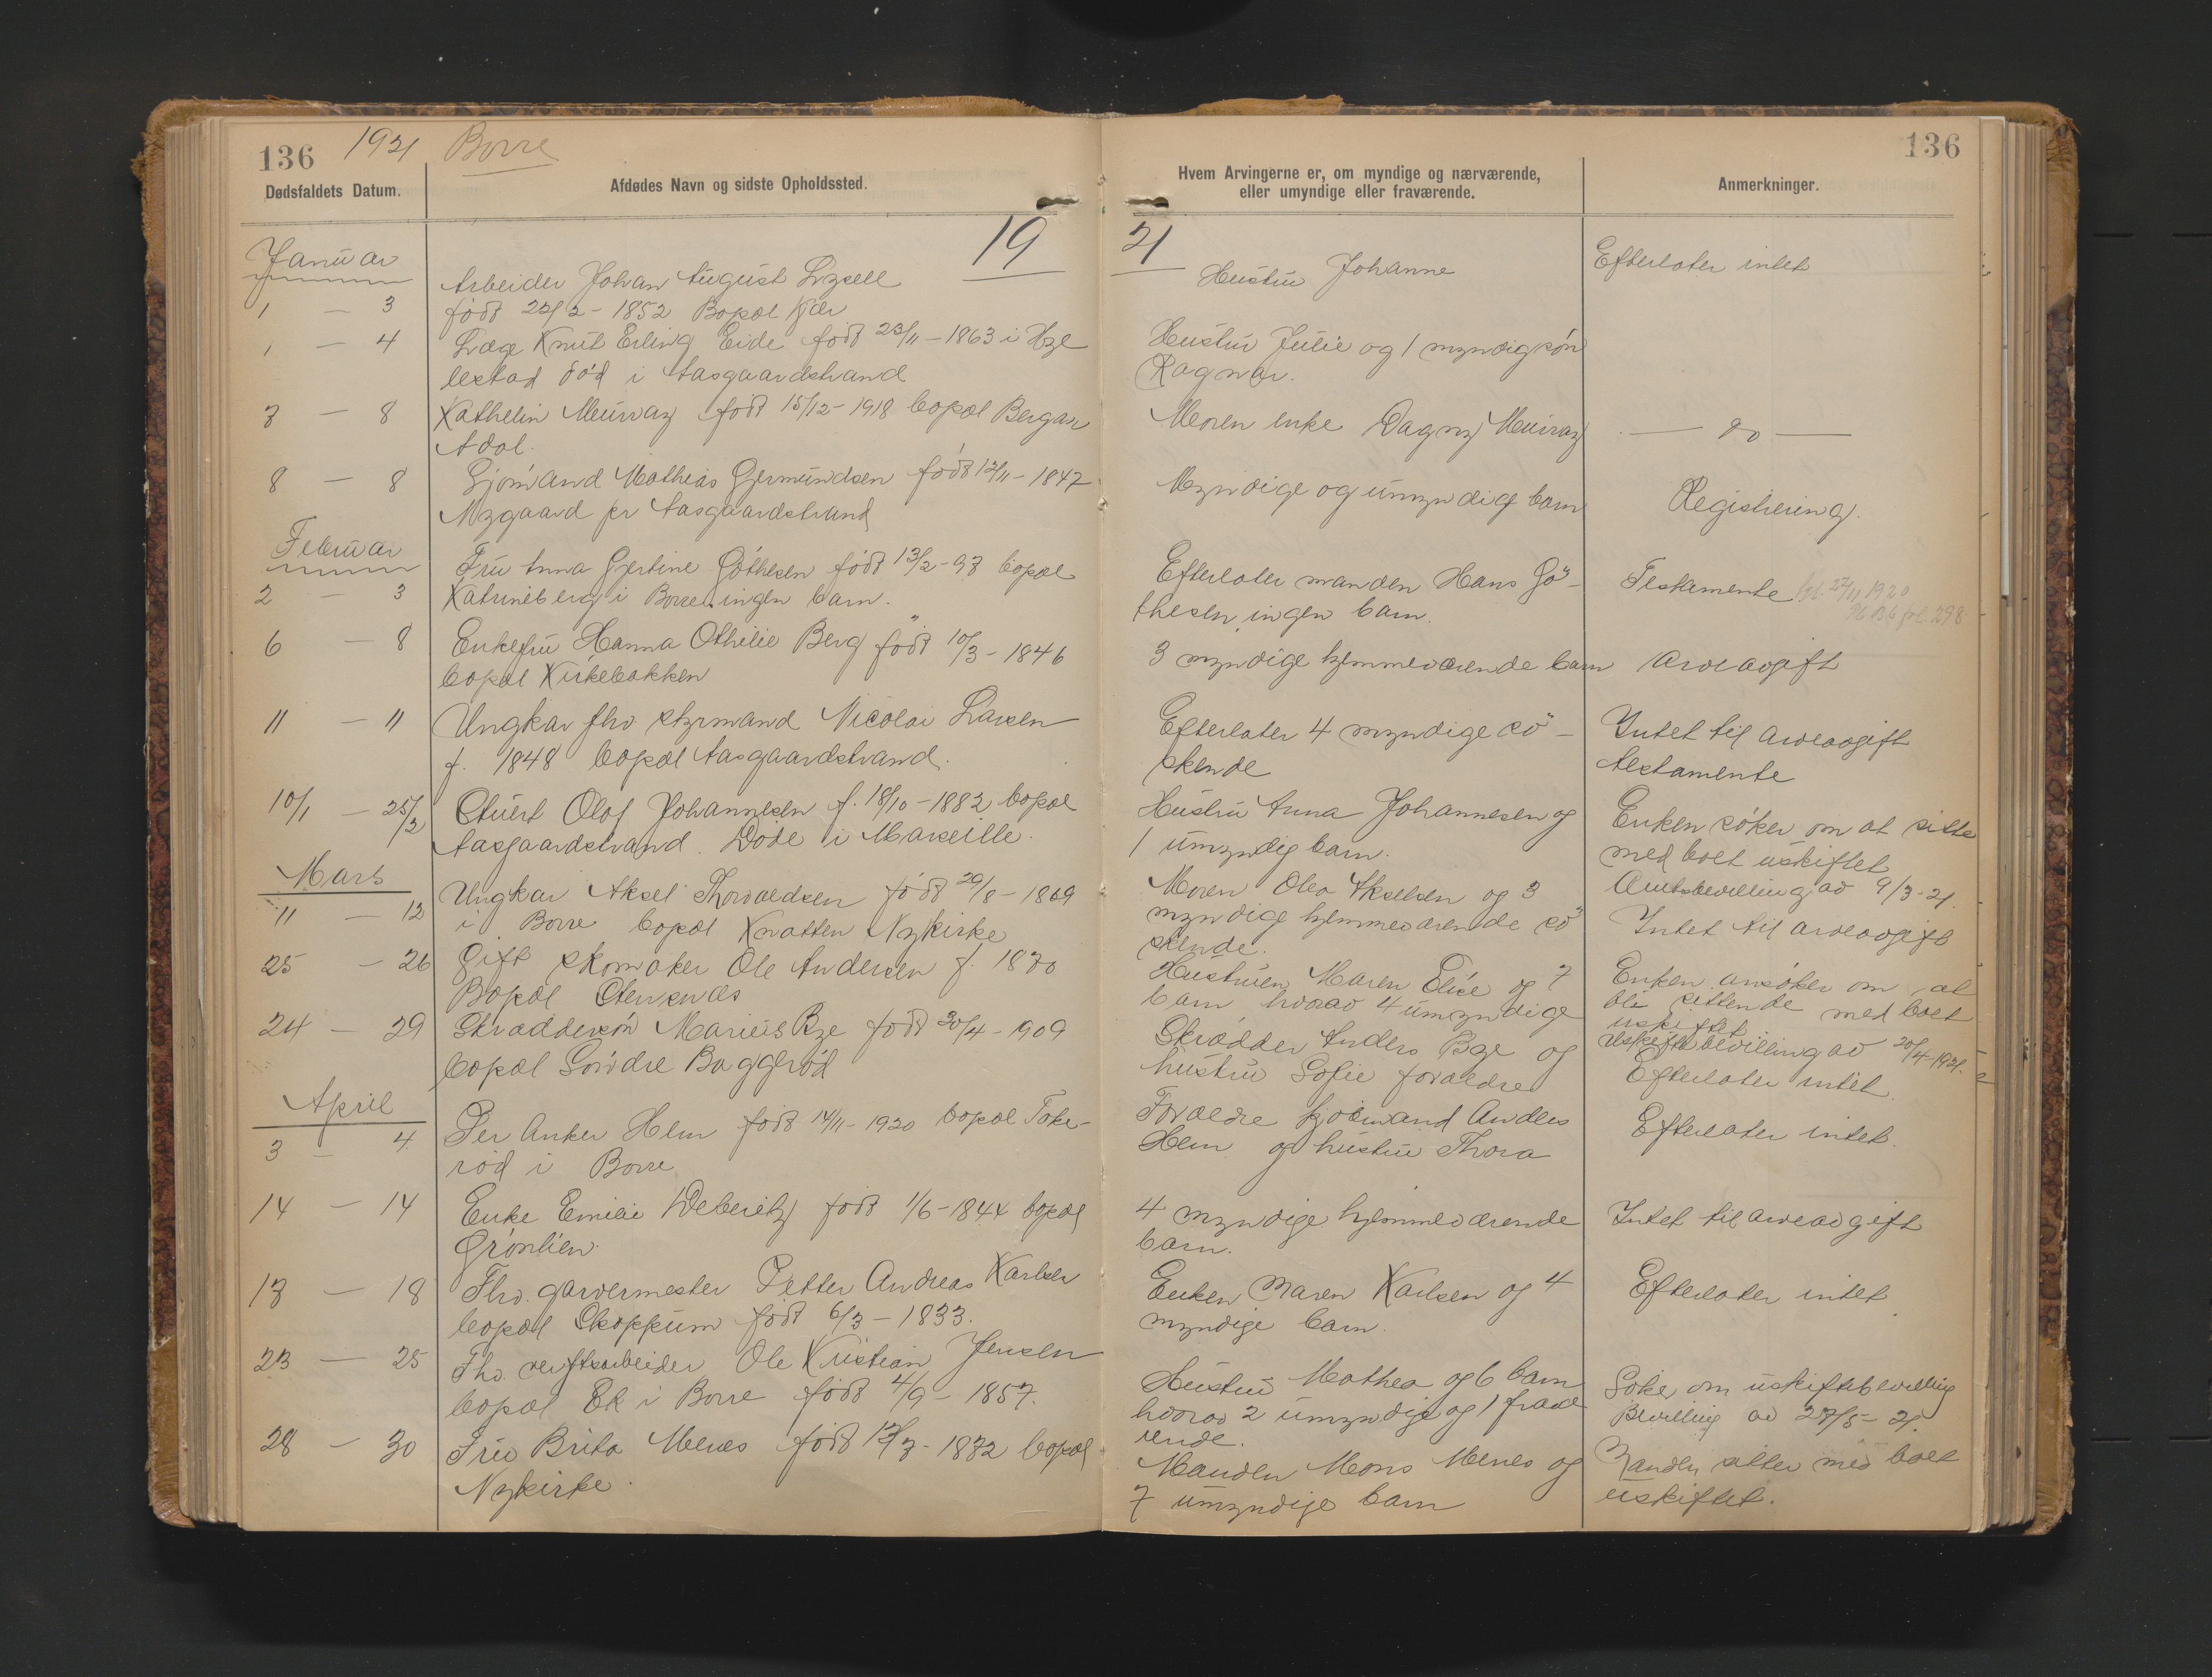 136 1921 Borre
Dødsfaldets Datum.
Afdødes Navn og sidste Opholdssted.
19
Januar
Arbeider Johan August
1 — 3 født 22/2 - 1852 Bopæl Kjær
1 — 4 Læge Knut Erling Eide født 23/11 - 1863 i Hyl
lestad død i Aasgaardstrand
7 — 8 Kathelin Murray født 15/12 - 1918 bopæl Bergan
Adal.
8 — 8 Sjømand Mathias Gjermundsen født 12/11 - 1847
Nygaard pr Aasgaardstrand
Februar
Fru Anna Gjertine Gøthesen født 13/2 - 97 bopæl
2 — 3 Katrineberg i Borre ingen barn.
6 — 8 Enkefru Hanna Othilie Berg født 10/3 - 1846
bopæl Kirkebakken
11 — 11 Ungkar fhv styrmand Nicolai Larsen
f. 1848 bopæl Aasgaardstrand.
10/1 — 25/2 Stuert Olof Johannesen f. 18/10 - 1882 bopæl
Aasgaardstrand. Døde i Marseille.
Mars
Ungkar Aksel Thorvaldsen født 29/8 - 1869
11 — 12 i Borre bopæl Knatten Nykirke
25 — 26 Gift skomaker Ole Andersen f. 1870
Bopæl Stensnæs
24 — 29 Skræddersøn Marius Bye født 30/4 - 1909
bopæl Søndre Baggerød
April
3 — 4. Per Anker Hem født 14/11 - 1920 bopæl Toke-
rød i Borre
14 — 14 Enke Emilie Weberitz født 1/6 - 1844 bopæl
Grønlien.
13 — 18 Fhv. garvermester Petter Andreas Karlsen
bopæl Skoppum født 6/3 - 1833.
23 — 25 Fhv. verftsarbeider Ole Kristian Jensen
bopæl Ek i Borre født 4/9 - 1857.
28 — 30 Fru Brita Menes født 12/7 - 1872 bopæl
Nykirke.
136
Hvem Arvingerne er, om myndige og nærværende,
eller umyndige eller fraværende.
Anmerkninger.
21
Hustru Johanne
Efterlater intet
Hustru Julie og 1 myndig søn
Ragnar.
Moren enke Dagny Murray
— do —
Myndige og umyndig barn
Registrering.
Efterlater manden Hans Gö-
thesen, ingen barn.
Testamente 27/11 1920
298
3 myndige hjemmeværende barn
Arveavgift
Efterlater 4 myndige sö-
skende
Intet til arveavgift
testamente
Hustru Anna Johannesen og
1 umyndig barn.
Enken søker om at sitte
med boet uskiftet
Amtsbevilling av 9/3 - 21.
Moren Olea Akselsen og 3
myndige hjemmeværende sö
skende.
Intet til arveavgift
Hustruen Maren Elise og 7
barn hvorav 4 umyndige
Enken ansøker om at
bli sittende med boet
uskiftet
Uskiftebevilling av 20/4 - 1921.
Skrædder Anders Bye og
hustru Sofie forældre
Efterlater intet.
Forældre sjømand Anders
Hem og hustru Thora
Efterlater intet.
4 myndige hjemmeværende
barn.
Intet til arveavgift
Enken Maren Karlsen og 4
myndige barn.
Efterlater intet
Hustru Mathea og 6 barn
hvorav 2 umyndige og 1 fravæ
rende.
Søker om uskiftebevilling
Bevilling av 27/5 - 21.
Manden Mons Menes og
7 umyndige barn
Manden sitter med boet
uskiftet.